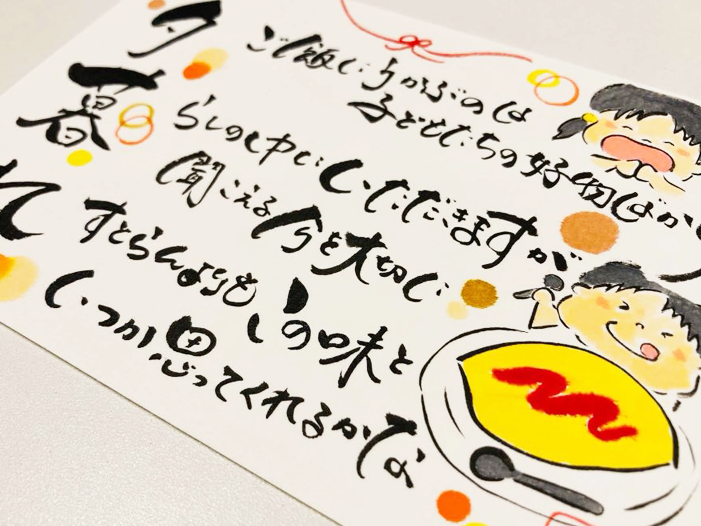 夕ご飯にうかぶのは
子どもたちの好物ばかり
暮らしの中にいただきますが
聞こえる今を大切に
れすとらんよりも の味と
いつか思ってくれるかな